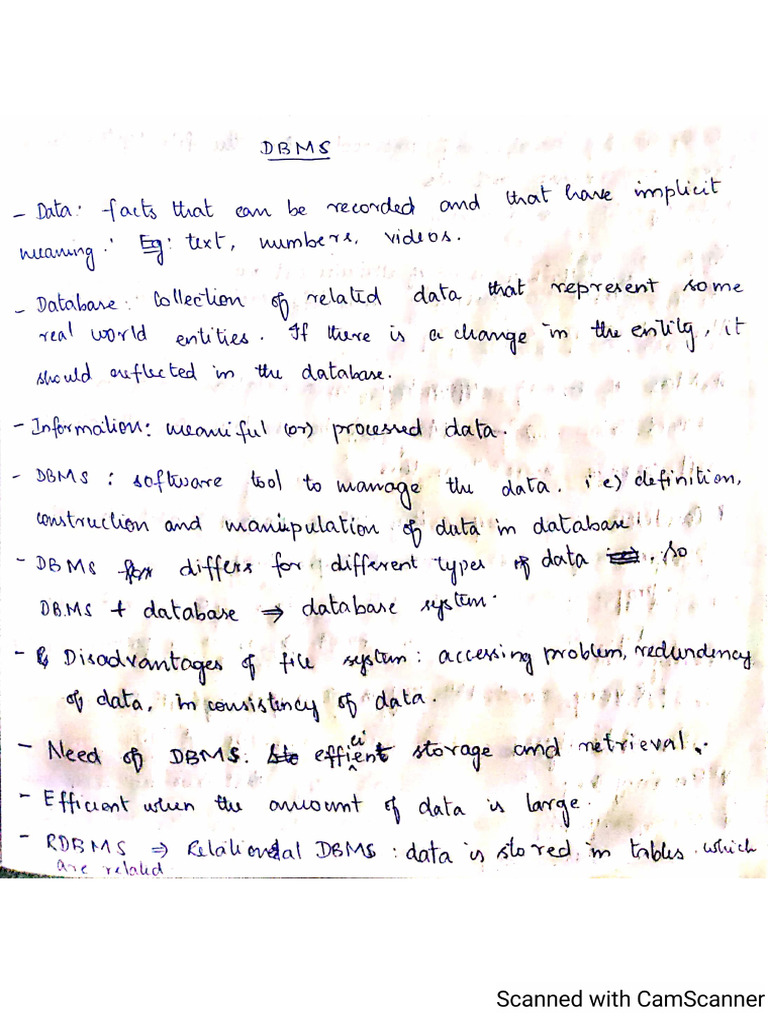 DBMS
- Data: facts that can be recorded and that have implicit
meaning. Eg: text, numbers, videos.
- Database: Collection of related data, that represent some
real world entities. If there is a change in the entity, it
should reflected in the database.
- Information: meaniful (or) processed data.
- DBMS : software tool to manage the data. i e) definition,
construction and manipulation of data in database
- DBMS differs for different types of data . so
DBMS + database ⇒ database system.
- Disadvantages of file system: accessing problem, redundency
of data, in consistency of data.
- Need of DBMS: efficient storage and retrieval.
- Efficient when the amount of data is large.
- RDBMS ⇒ Relational DBMS: data is stored in tables which
are related
Scanned with CamScanner